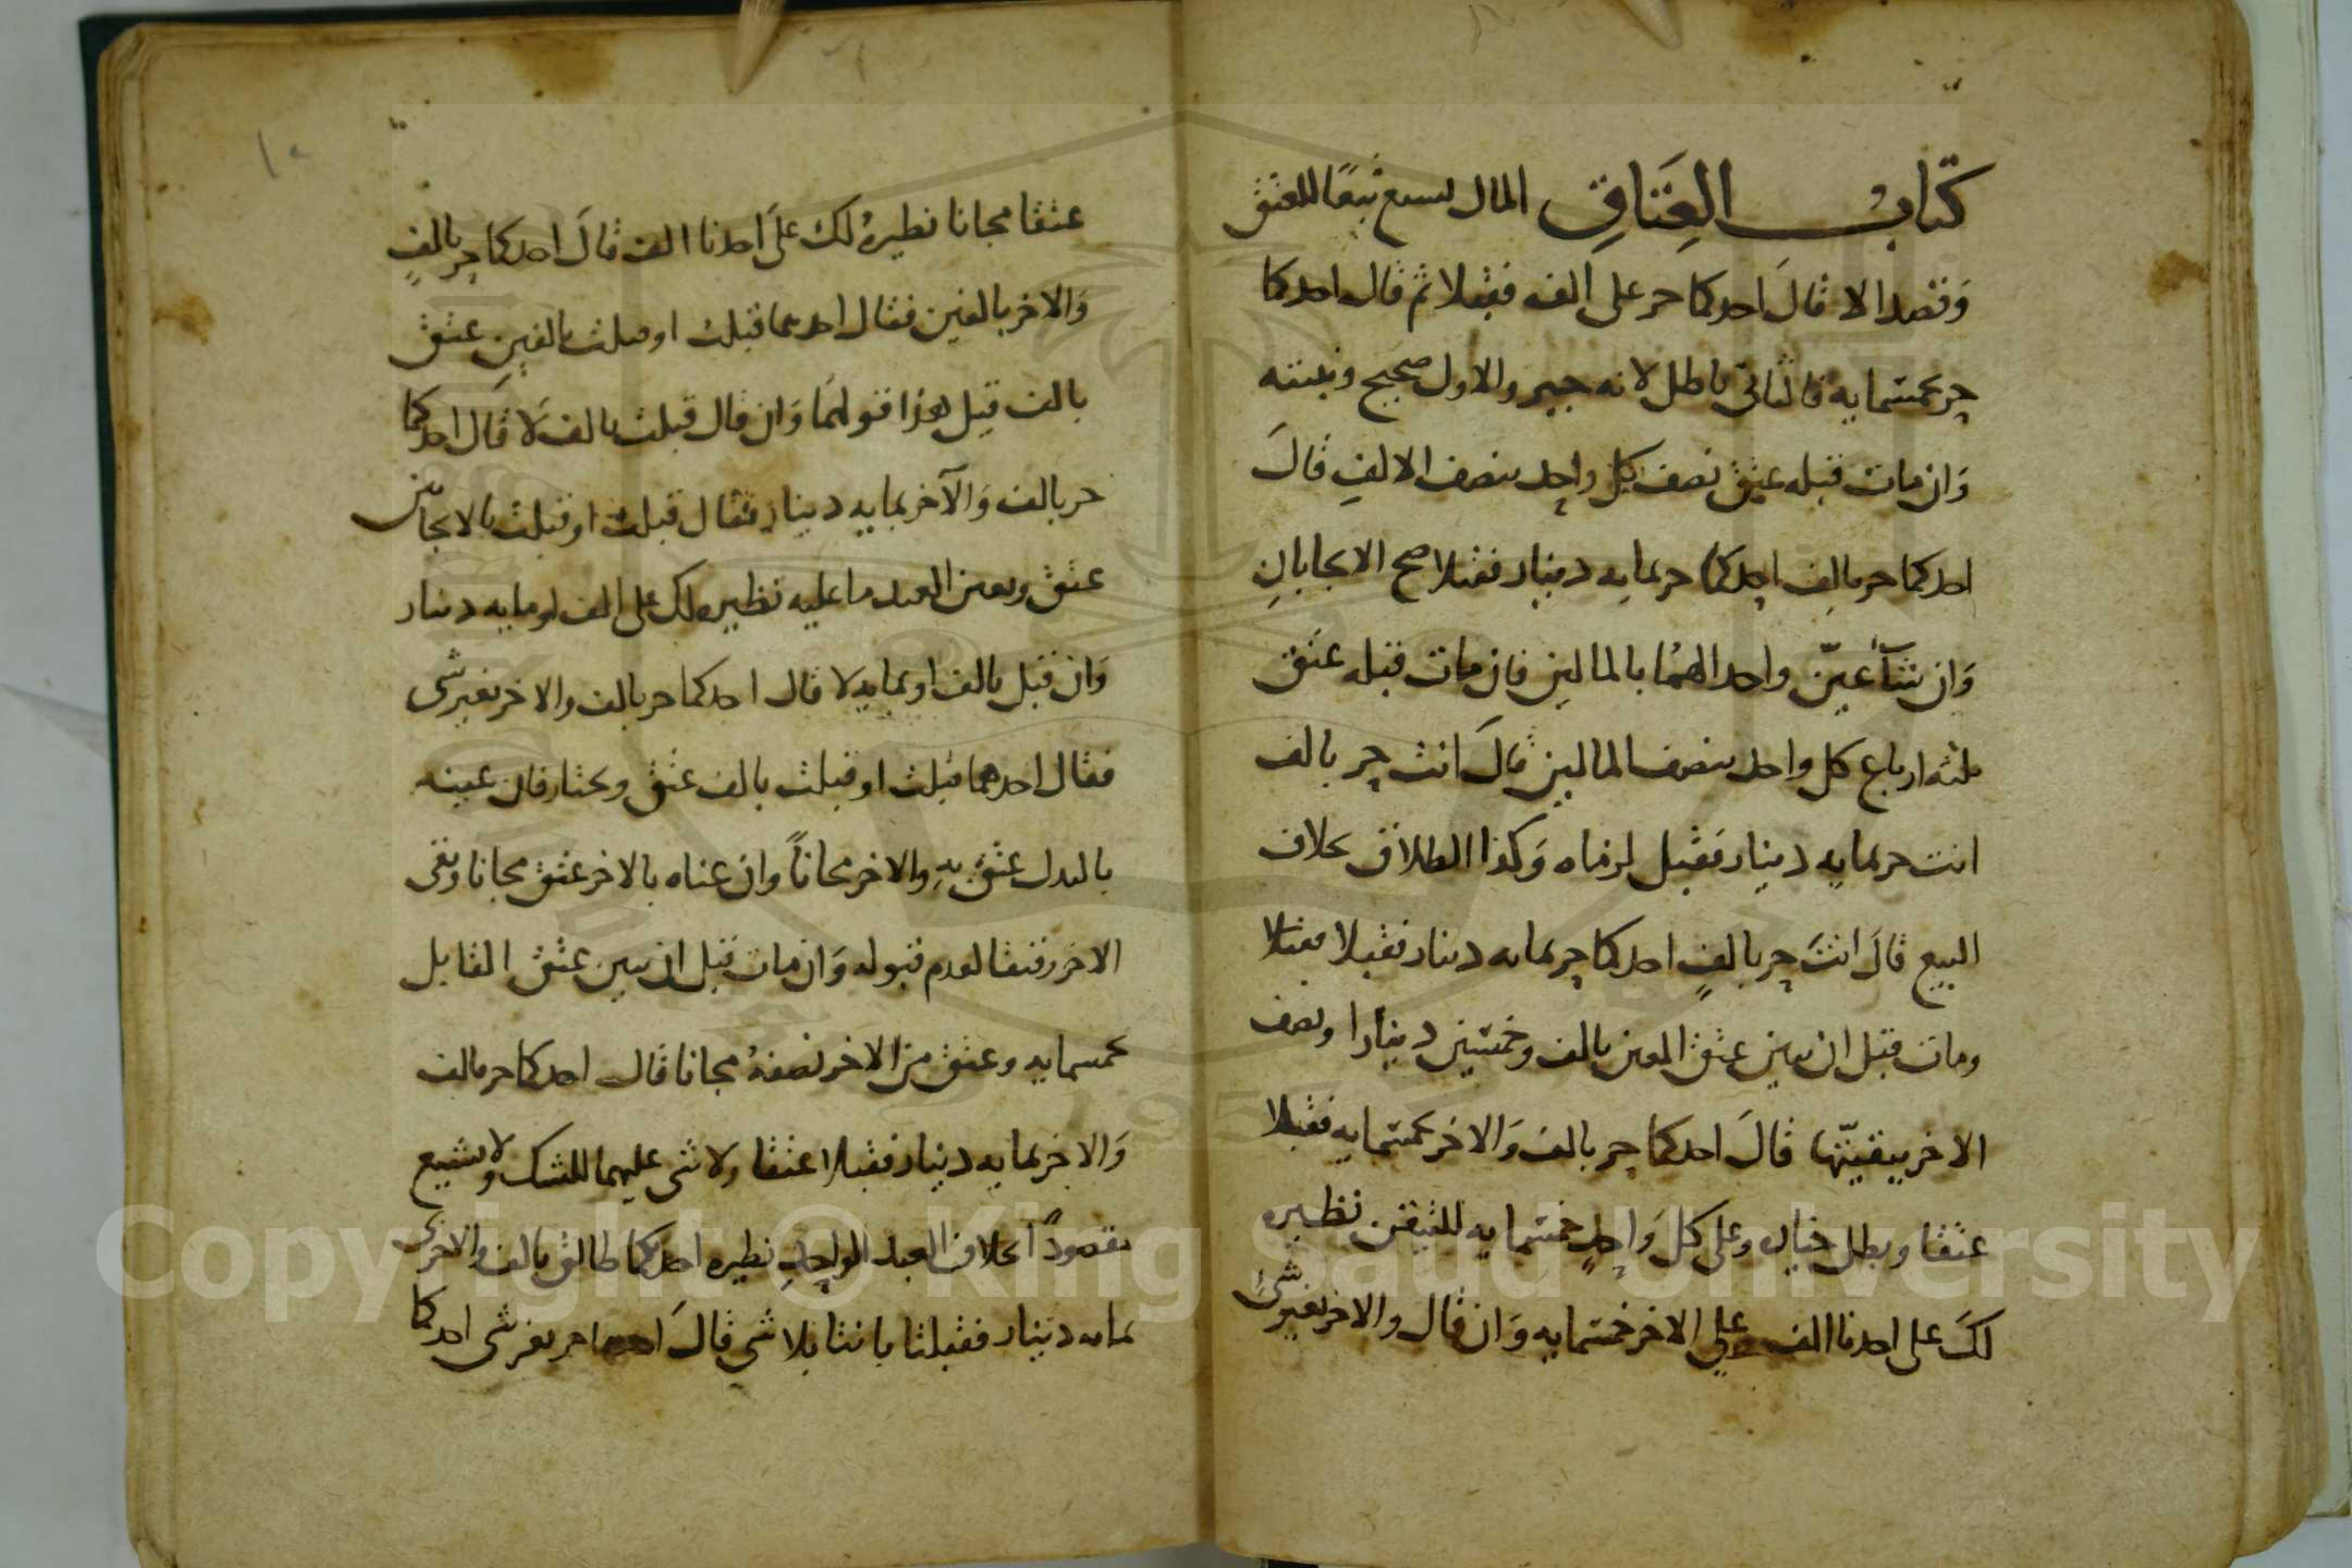 كتاب العِتَاقِ المال يسع تبعًا للعتق
وَقصدا لا قالَ احدكما حر على الف فقبلا ثم قال احدكما
حر بخمسمايه فالثانى باطل لانه خيير والاول صحيح وبينته
وَان مات قبله عتق نصف كل واحد بنصف الالفِ قالَ
احدكما حر بالف احدكما حر بمايه دينار فقبلا صح الايجابانِ
وَان شآءَ عيّن واحدا لهمُا بالمالين فان مات قبله عتق
ثلثه ارباع كل واحد بنصف المالين قالَ انت حر بالف
انت حر بمايه دينار فقبل لزماه وَكذا الطلاق بخلاف
البيع قالَ انتَ حر بالفٍ احدكما حر بمايه دينار فقبلا
ومات قبل ان يبين عتق المعين بالف وخمسين دينارا ونصف
الاخر بيقينها قالَ احدكما حر بالف وَالاخر بخمسمايه فقبلا
عتقا وبطل خياره وعلى كل وَاحدٍ خمسمايه للتيقن نظيره
لكَ على احدنا الف وعلى الاخر خمسمايه وَان قال والاخر بغير شئ
١٠
عتقا مجانا نظيرهُ لك علىَ احدنا الف قالَ احدكما حر بالفٍ
وَالاخر بالفين فقال احدهما قبلت او قبلت بالفين عتق
بالف قيل هذا قولهمَا وَان قال قبلت بالف لَا قالَ احدكما
حر بالف وَالآخر بمايه دينار فقال قبلت او قبلت بالايجابين
عتق وبعين العبد ما عليه نظيره لك على الف او مايه دينار
وَان قبل بالف او بمايه لا قال احدكما حر بالف والاخر بغير شى
فقال احدهما قبلت او قبلت بالف عتق ويختار فان عينه
بالبدل عتق بهِ والاخر مجاناً وان عناه بالاخر عتق مجانا وبقى
الاخر رقيقا لعدم قبوله وَان مات قبل ان يبين عتق القابل
بخمسمايه وعتق من الاخر نصفهُ مجانا قال احدكما حر بالف
وَالاخر بمايه دينار فقبلا عتقا ولا شى عليهما للشك ولا يشيع
مقصوداً بخلاف العبد الواحدِ نظيره احدكما طالق بالف والاخرى
بمايه دينار فقبلتا بانتا بلا شى قالَ احدكما حر بغير شى احدكما